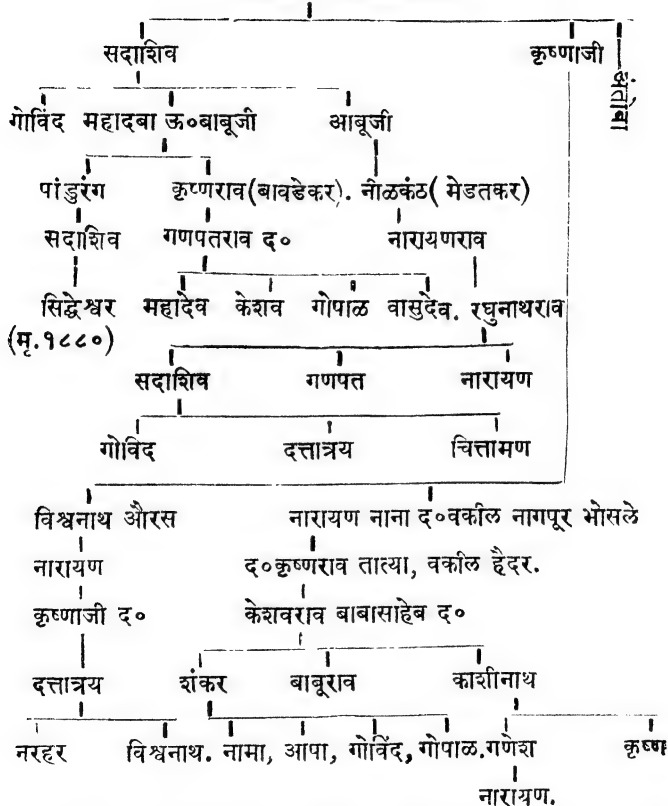 सदाशिव कृष्णाजी अंतोबा
गोविंद महादबा ऊ०बाबूजी आबूजी
पांडुरंग कृष्णराव(बावडेकर). नीळकंठ( मेडतकर)
सदाशिव गणपतराव द० नारायणराव
सिद्धेश्वर महादेव केशव गोपाळ वासुदेव. रघुनाथराव
(मृ.१८८०)
सदाशिव गणपत नारायण
गोविंद दत्तात्रय चित्तामण
विश्वनाथ औरस नारायण नाना द०वकील नागपूर भोसले
नारायण द०कृष्णराव तात्या, वकील हैदर.
कृष्णाजी द० केशवराव बाबासाहेब द०
दत्तात्रय शंकर बाबूराव काशीनाथ
नरहर विश्वनाथ. नामा, आपा, गोविंद, गोपाळ.गणेश कृष्ण
नारायण.